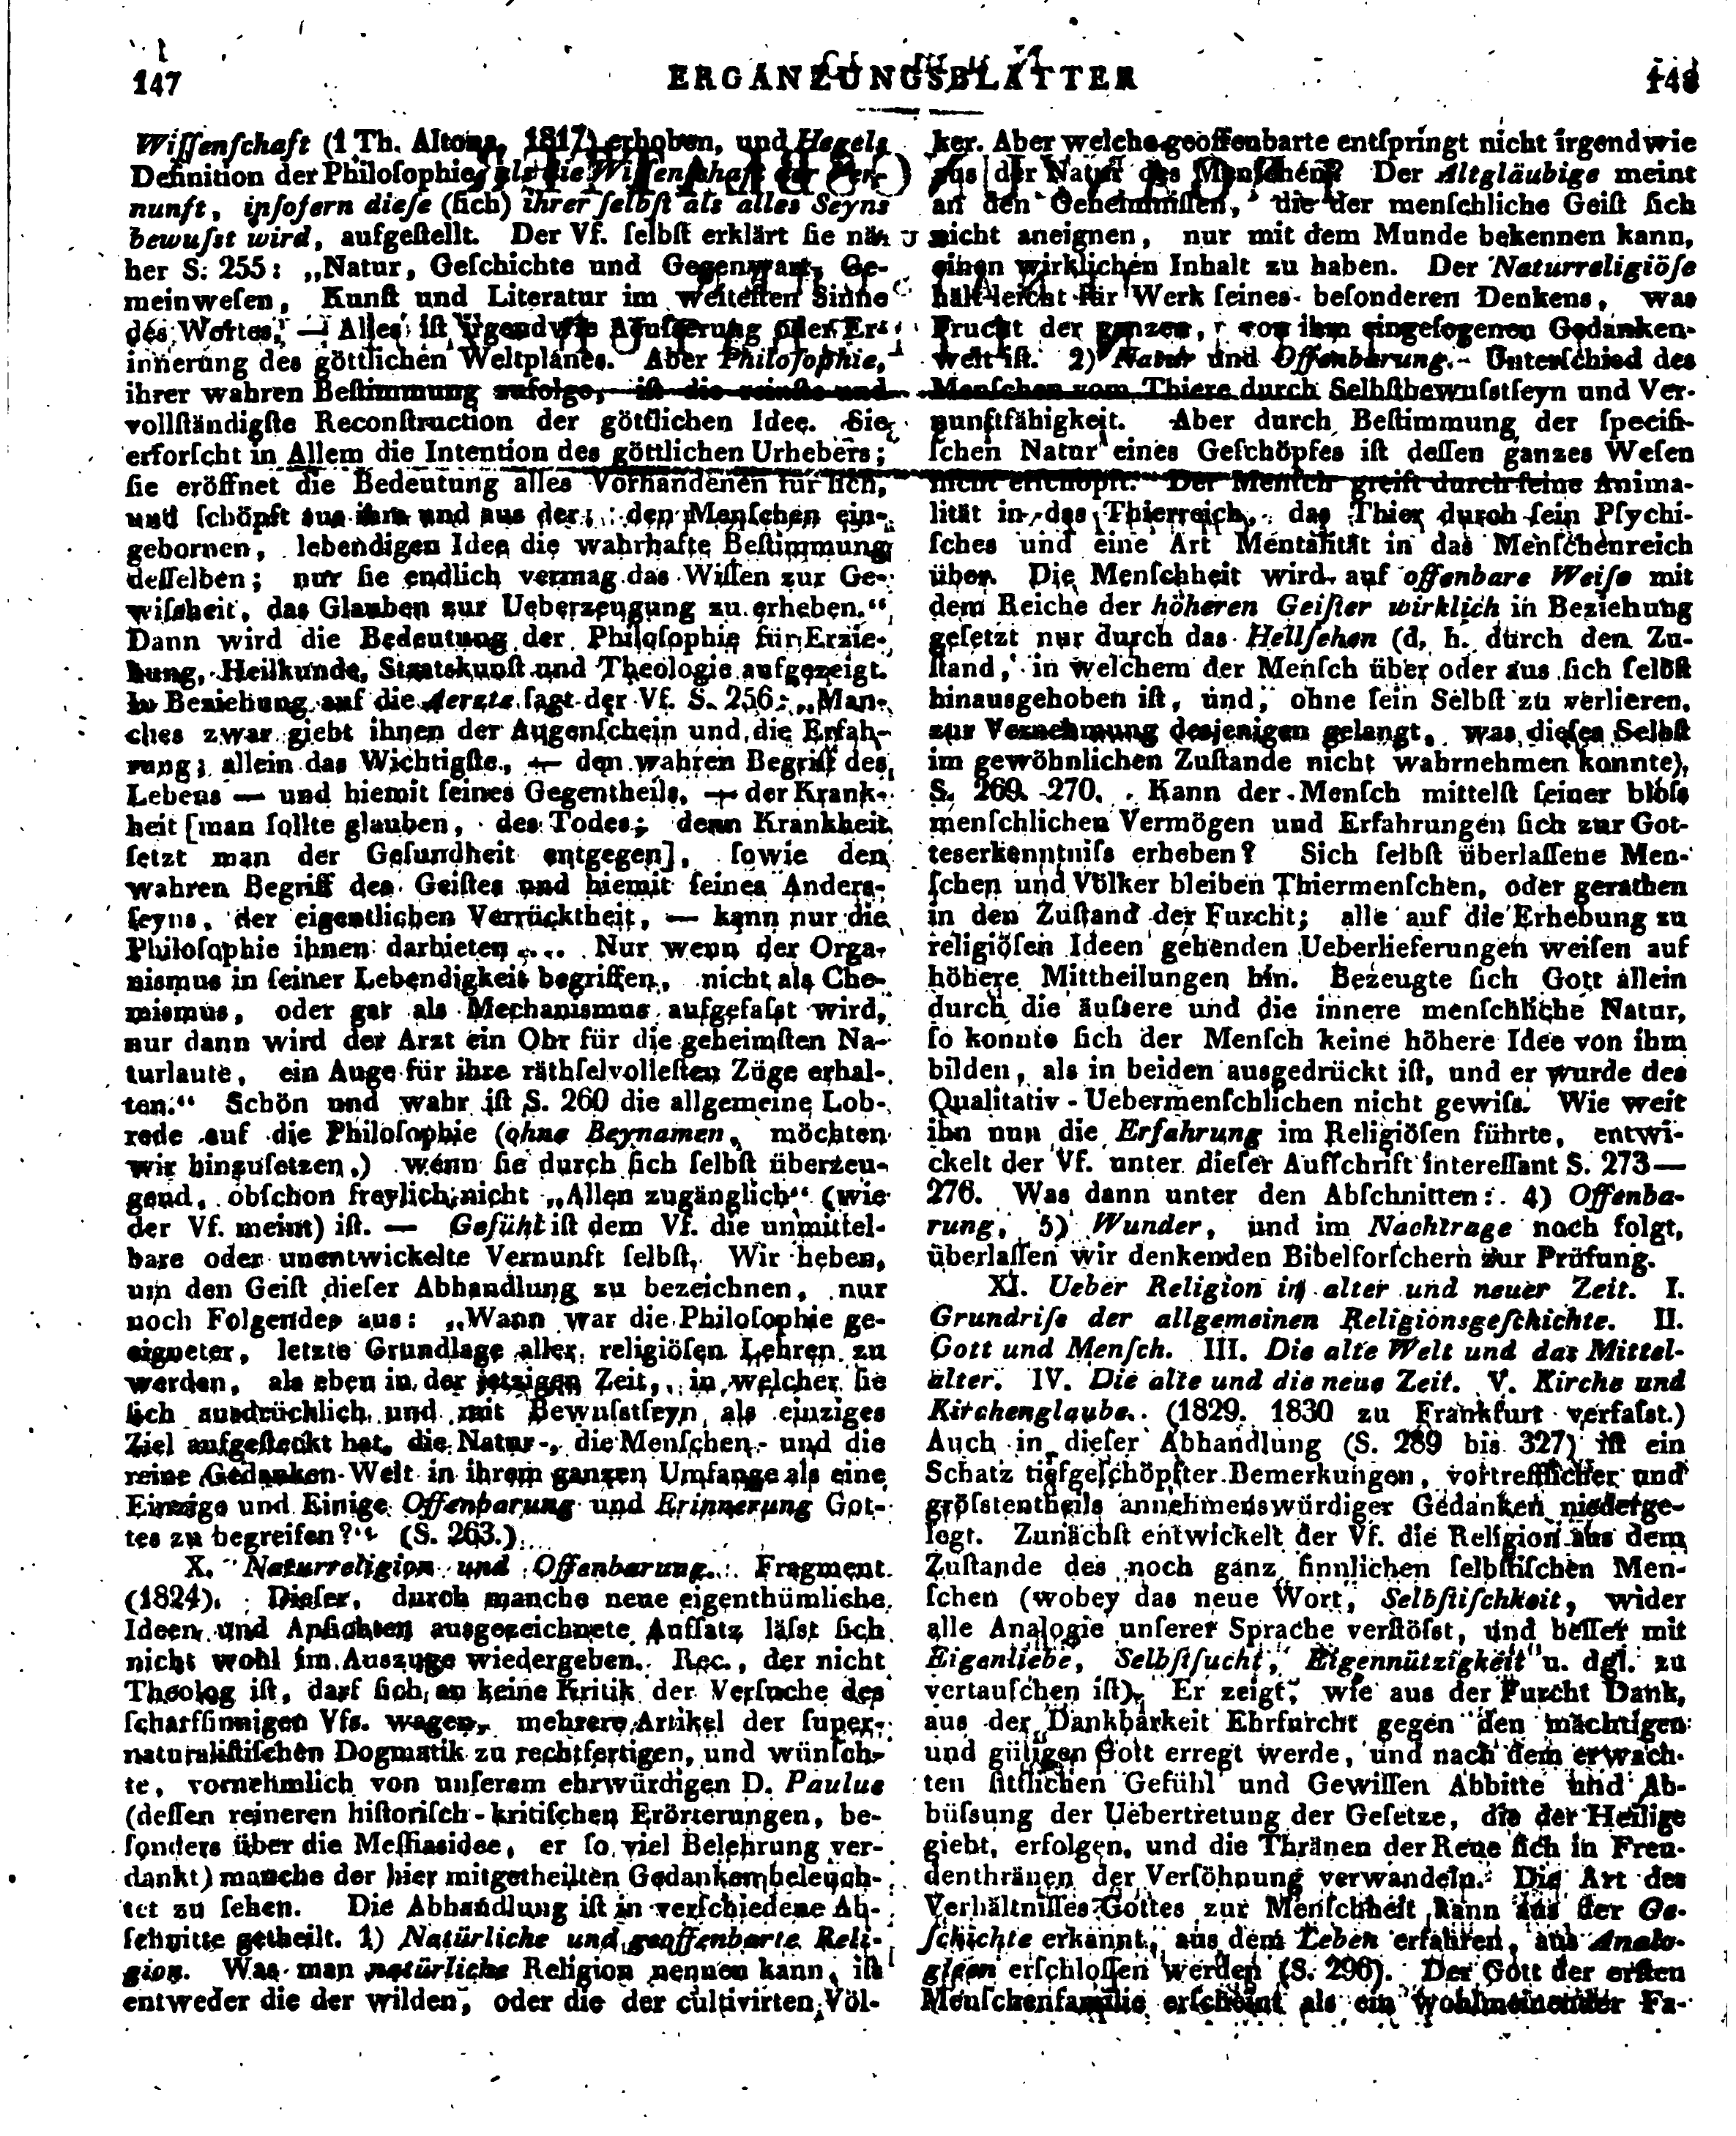 147 ERGÄNZUNGSBLÄTTER 148
Wiſſenſchaft (1 Th. Altona, 1817) erhoben, und Hegels
Definition der Philoſophie, als die Wiſſenſchaft der Ver-
nunft, inſofern dieſe (ſich) ihrer ſelbſt als alles Seyns
bewuſst wird, aufgeſtellt. Der Vf. ſelbſt erklärt ſie nä-
her S. 255: „Natur, Geſchichte und Gegenwart, Ge-
meinweſen, Kunſt und Literatur im weiteſten Sinne
des Wortes, — Alles iſt irgendwie Aeuſserung oder Er-
innerung des göttlichen Weltplanes. Aber Philoſophie,
ihrer wahren Beſtimmung zufolge, iſt die reinſte und
vollſtändigſte Reconſtruction der göttlichen Idee. Sie
erforſcht in Allem die Intention des göttlichen Urhebers;
ſie eröffnet die Bedeutung alles Vorhandenen für ſich,
und ſchöpft aus ihm und aus der, den Menſchen ein-
gebornen, lebendigen Idee die wahrhafte Beſtimmung
deſſelben; nur ſie endlich vermag das Wiſſen zur Ge-
wiſsheit, das Glauben zur Ueberzeugung zu erheben.“
Dann wird die Bedeutung der Philoſophie für Erzie-
hung, Heilkunde, Staatskunſt und Theologie aufgezeigt.
In Beziehung auf die Aerzte ſagt der Vf. S. 256: „Man-
ches zwar giebt ihnen der Augenſchein und die Erfah-
rung; allein das Wichtigſte, — den wahren Begriff des
Lebens — und hiemit ſeines Gegentheils, — der Krank-
heit [man ſollte glauben, des Todes; denn Krankheit
ſetzt man der Geſundheit entgegen], ſowie den
wahren Begriff des Geiſtes und hiemit ſeines Anders-
ſeyns, der eigentlichen Verrücktheit, — kann nur die
Philoſophie ihnen darbieten .... Nur wenn der Orga-
nismus in ſeiner Lebendigkeit begriffen, nicht als Che-
mismus, oder gar als Mechanismus aufgefaſst wird,
nur dann wird der Arzt ein Ohr für die geheimſten Na-
turlaute, ein Auge für ihre räthſelvolleſten Züge erhal-
ten.“ Schön und wahr iſt S. 260 die allgemeine Lob-
rede auf die Philoſophie (ohne Beynamen, möchten
wir hinzuſetzen,) wenn ſie durch ſich ſelbſt überzeu-
gend, obſchon freylich nicht „Allen zugänglich“ (wie
der Vf. meint) iſt. — Gefühl iſt dem Vf. die unmittel-
bare oder unentwickelte Vernunft ſelbſt. Wir heben,
um den Geiſt dieſer Abhandlung zu bezeichnen, nur
noch Folgendes aus: „Wann war die Philoſophie ge-
eigneter, letzte Grundlage aller religiöſen Lehren zu
werden, als eben in der jetzigen Zeit, in welcher ſie
ſich ausdrücklich und mit Bewuſstſeyn als einziges
Ziel aufgeſteckt hat, die Natur-, die Menſchen- und die
reine Gedanken-Welt in ihrem ganzen Umfange als eine
Einzige und Einige Offenbarung und Erinnerung Got-
tes zu begreifen?“ (S. 263.)
X. Naturreligion und Offenbarung. Fragment.
(1824). Dieſer, durch manche neue eigenthümliche
Ideen und Anſichten ausgezeichnete Aufſatz läſst ſich
nicht wohl im Auszuge wiedergeben. Rec., der nicht
Theolog iſt, darf ſich an keine Kritik der Verſuche des
ſcharfſinnigen Vfs. wagen, mehrere Artikel der ſuper-
naturaliſtiſchen Dogmatik zu rechtfertigen, und wünſch-
te, vornehmlich von unſerem ehrwürdigen D. Paulus
(deſſen reineren hiſtoriſch-kritiſchen Erörterungen, be-
ſonders über die Meſſiasidee, er ſo viel Belehrung ver-
dankt) manche der hier mitgetheilten Gedanken beleuch-
tet zu ſehen. Die Abhandlung iſt in verſchiedene Ab-
ſchnitte getheilt. 1) Natürliche und geoffenbarte Reli-
gion. Was man natürliche Religion nennen kann, iſt
entweder die der wilden, oder die der cultivirten Völ-
ker. Aber welche geoffenbarte entſpringt nicht irgendwie
aus der Natur des Menſchen? Der Altgläubige meint
an den Geheimniſſen, die der menſchliche Geiſt ſich
nicht aneignen, nur mit dem Munde bekennen kann,
einen wirklichen Inhalt zu haben. Der Naturreligiöſe
hält leicht für Werk ſeines beſonderen Denkens, was
Frucht der ganzen, von ihm eingeſogenen Gedanken-
welt iſt. 2) Natur und Offenbarung. Unterſchied des
Menſchen vom Thiere durch Selbſtbewuſstſeyn und Ver-
nunftfähigkeit. Aber durch Beſtimmung der ſpecifi-
ſchen Natur eines Geſchöpfes iſt deſſen ganzes Weſen
nicht erſchöpft. Der Menſch greift durch ſeine Anima-
lität in das Thierreich, das Thier durch ſein Pſychi-
ſches und eine Art Mentalität in das Menſchenreich
über. Die Menſchheit wird auf offenbare Weiſe mit
dem Reiche der höheren Geiſter wirklich in Beziehung
geſetzt nur durch das Hellſehen (d. h. durch den Zu-
ſtand, in welchem der Menſch über oder aus ſich ſelbſt
hinausgehoben iſt, und, ohne ſein Selbſt zu verlieren,
zur Vernehmung desjenigen gelangt, was dieſes Selbſt
im gewöhnlichen Zuſtande nicht wahrnehmen konnte),
S. 269. 270. Kann der Menſch mittelſt ſeiner bloſs
menſchlichen Vermögen und Erfahrungen ſich zur Got-
teserkenntniſs erheben? Sich ſelbſt überlaſſene Men-
ſchen und Völker bleiben Thiermenſchen, oder gerathen
in den Zuſtand der Furcht; alle auf die Erhebung zu
religiöſen Ideen gehenden Ueberlieferungen weiſen auf
höhere Mittheilungen hin. Bezeugte ſich Gott allein
durch die äuſsere und die innere menſchliche Natur,
ſo konnte ſich der Menſch keine höhere Idee von ihm
bilden, als in beiden ausgedrückt iſt, und er wurde des
Qualitativ-Uebermenſchlichen nicht gewiſs. Wie weit
ihn nun die Erfahrung im Religiöſen führte, entwi-
ckelt der Vf. unter dieſer Aufſchrift intereſſant S. 273—
276. Was dann unter den Abſchnitten: 4) Offenba-
rung, 5) Wunder, und im Nachtrage noch folgt,
überlaſſen wir denkenden Bibelforſchern zur Prüfung.
XI. Ueber Religion in alter und neuer Zeit. I.
Grundriſs der allgemeinen Religionsgeſchichte. II.
Gott und Menſch. III. Die alte Welt und das Mittel-
alter. IV. Die alte und die neue Zeit. V. Kirche und
Kirchenglaube. (1829. 1830 zu Frankfurt verfaſst.)
Auch in dieſer Abhandlung (S. 289 bis 327) iſt ein
Schatz tiefgeſchöpfter Bemerkungen, vortrefflicher und
gröſstentheils annehmenswürdiger Gedanken niederge-
legt. Zunächſt entwickelt der Vf. die Religion aus dem
Zuſtande des noch ganz ſinnlichen ſelbſtiſchen Men-
ſchen (wobey das neue Wort, Selbſtiſchkeit, wider
alle Analogie unſerer Sprache verſtöſst, und beſſer mit
Eigenliebe, Selbſtſucht, Eigennützigkeit u. dgl. zu
vertauſchen iſt). Er zeigt, wie aus der Furcht Dank,
aus der Dankbarkeit Ehrfurcht gegen den mächtigen
und gütigen Gott erregt werde, und nach dem erwach-
ten ſittlichen Gefühl und Gewiſſen Abbitte und Ab-
büſsung der Uebertretung der Geſetze, die der Heilige
giebt, erfolgen, und die Thränen der Reue ſich in Freu-
denthränen der Verſöhnung verwandeln. Die Art des
Verhältniſſes Gottes zur Menſchheit kann aus der Ge-
ſchichte erkannt, aus dem Leben erfahren, aus Analo-
gieen erſchloſſen werden (S. 296). Der Gott der erſten
Menſchenfamilie erſcheint als ein wohlmeinender Fa-